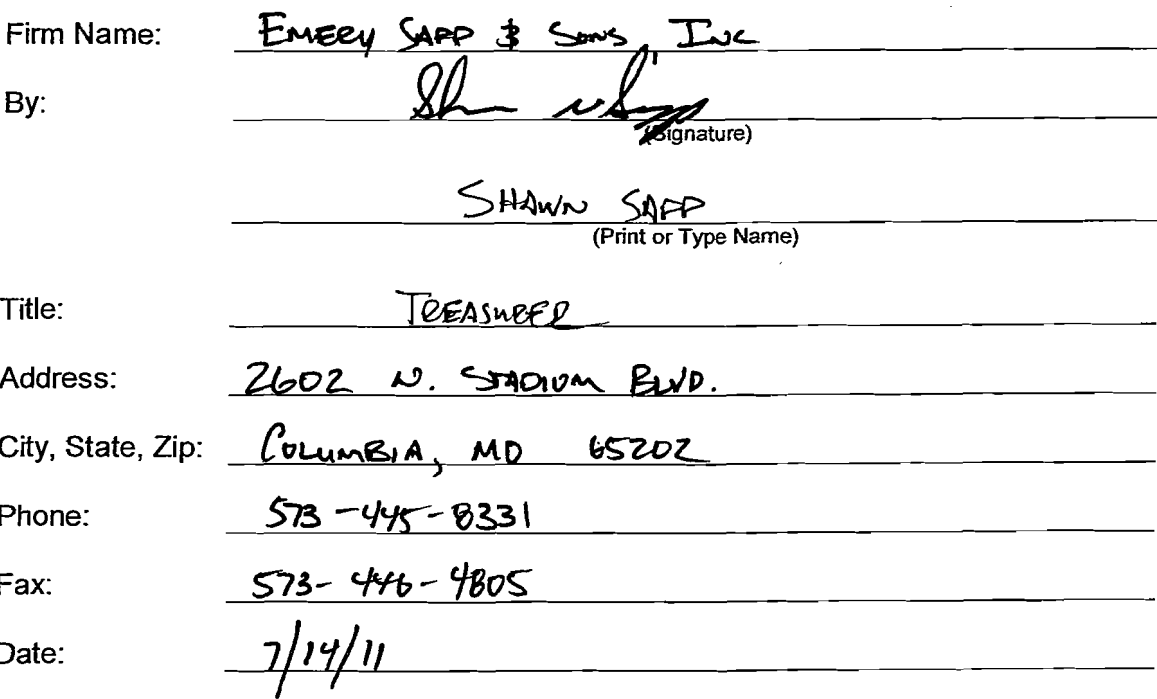 Firm Name: EMERY SAPP & SONS, INC
By:
(Signature)
SHAWN SAPP
(Print or Type Name)
Title: TREASURER
Address: 2602 N. STADIUM BLVD.
City, State, Zip: COLUMBIA, MO 65202
Phone: 573-445-8331
Fax: 573-446-4805
Date: 7/14/11